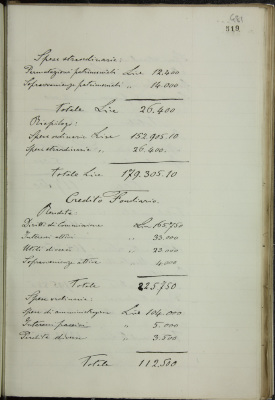 319
Spese straordinarie:
Permutazioni patrimoniali Lire 12.400
Sopravvenienze patrimoniali " 14.000
Totale Lire 26.400
Riepilogo:
Spese ordinarie Lire 152.905.10
Spese straordinarie " 26.400.
Totale Lire 179.305.10
Credito Fondiario
Rendite:
Diritti di Commissione Lire 165.750
Interessi attivi " 33.000
Utili diversi " 23.000
Sopravvenienze attive 4.000
Totale 225.750
Spese ordinarie:
Spese di amministrazione Lire 104.000.
Interessi passivi " 5.000
Perdite diverse " 3.500
Totale 112.500